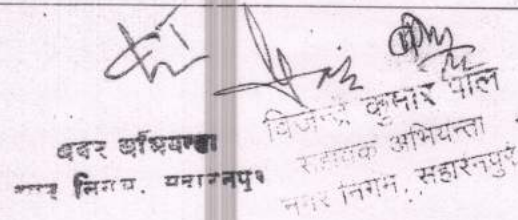 अवर अभियन्ता
नगर निगम, सहारनपुर
विजेन्द्र कुमार पाल
सहायक अभियन्ता
नगर निगम, सहारनपुर